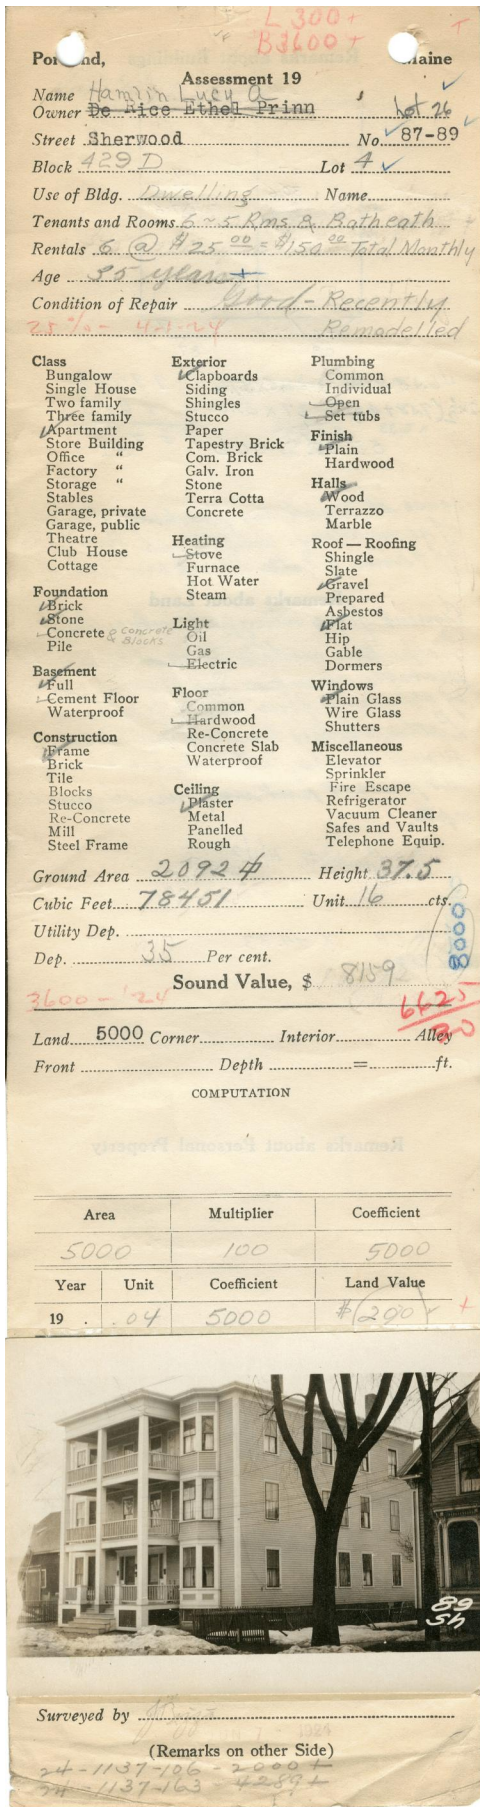 L 300 +
B 3600 +
Portland, Maine
Assessment 19
Name Hamlin Lucy A
Owner De Rice Ethel Prinn Lot 26
Street Sherwood No. 87-89
Block 429 D Lot 4
Use of Bldg. Dwelling Name
Tenants and Rooms 6 ~ 5 Rms & Batheath
Rentals 6 @ $25 00 = $150 00 Total Monthly
Age 35 years
Condition of Repair Good - Recently
25 % - 4-1-24 Remodelled
Class
Bungalow
Single House
Two family
Three family
Apartment
Store Building
Office "
Factory "
Storage "
Stables
Garage, private
Garage, public
Theatre
Club House
Cottage
Foundation
Brick
Stone
Concrete & Concrete Blocks
Pile
Basement
Full
Cement Floor
Waterproof
Construction
Frame
Brick
Tile
Blocks
Stucco
Re-Concrete
Mill
Steel Frame
Exterior
Clapboards
Siding
Shingles
Stucco
Paper
Tapestry Brick
Com. Brick
Galv. Iron
Stone
Terra Cotta
Concrete
Heating
Stove
Furnace
Hot Water
Steam
Light
Oil
Gas
Electric
Floor
Common
Hardwood
Re-Concrete
Concrete Slab
Waterproof
Ceiling
Plaster
Metal
Panelled
Rough
Plumbing
Common
Individual
Open
Set tubs
Finish
Plain
Hardwood
Halls
Wood
Terrazzo
Marble
Roof — Roofing
Shingle
Slate
Gravel
Prepared
Asbestos
Flat
Hip
Gable
Dormers
Windows
Plain Glass
Wire Glass
Shutters
Miscellaneous
Elevator
Sprinkler
Fire Escape
Refrigerator
Vacuum Cleaner
Safes and Vaults
Telephone Equip.
Ground Area 2092 Height 37.5
Cubic Feet 78451 Unit 16 cts.
Utility Dep.
8000
Dep. 35 Per cent.
Sound Value, $ 8159
3600 - '24
6625
Land 5000 Corner Interior Alley
Front Depth = ft.
COMPUTATION
Area Multiplier Coefficient
5000 100 5000
Year Unit Coefficient Land Value
19 . .04 5000 $ 200
89
Sh
Surveyed by
1924
(Remarks on other Side)
24-1137-106-2000 +
24-1137-163-4289 +